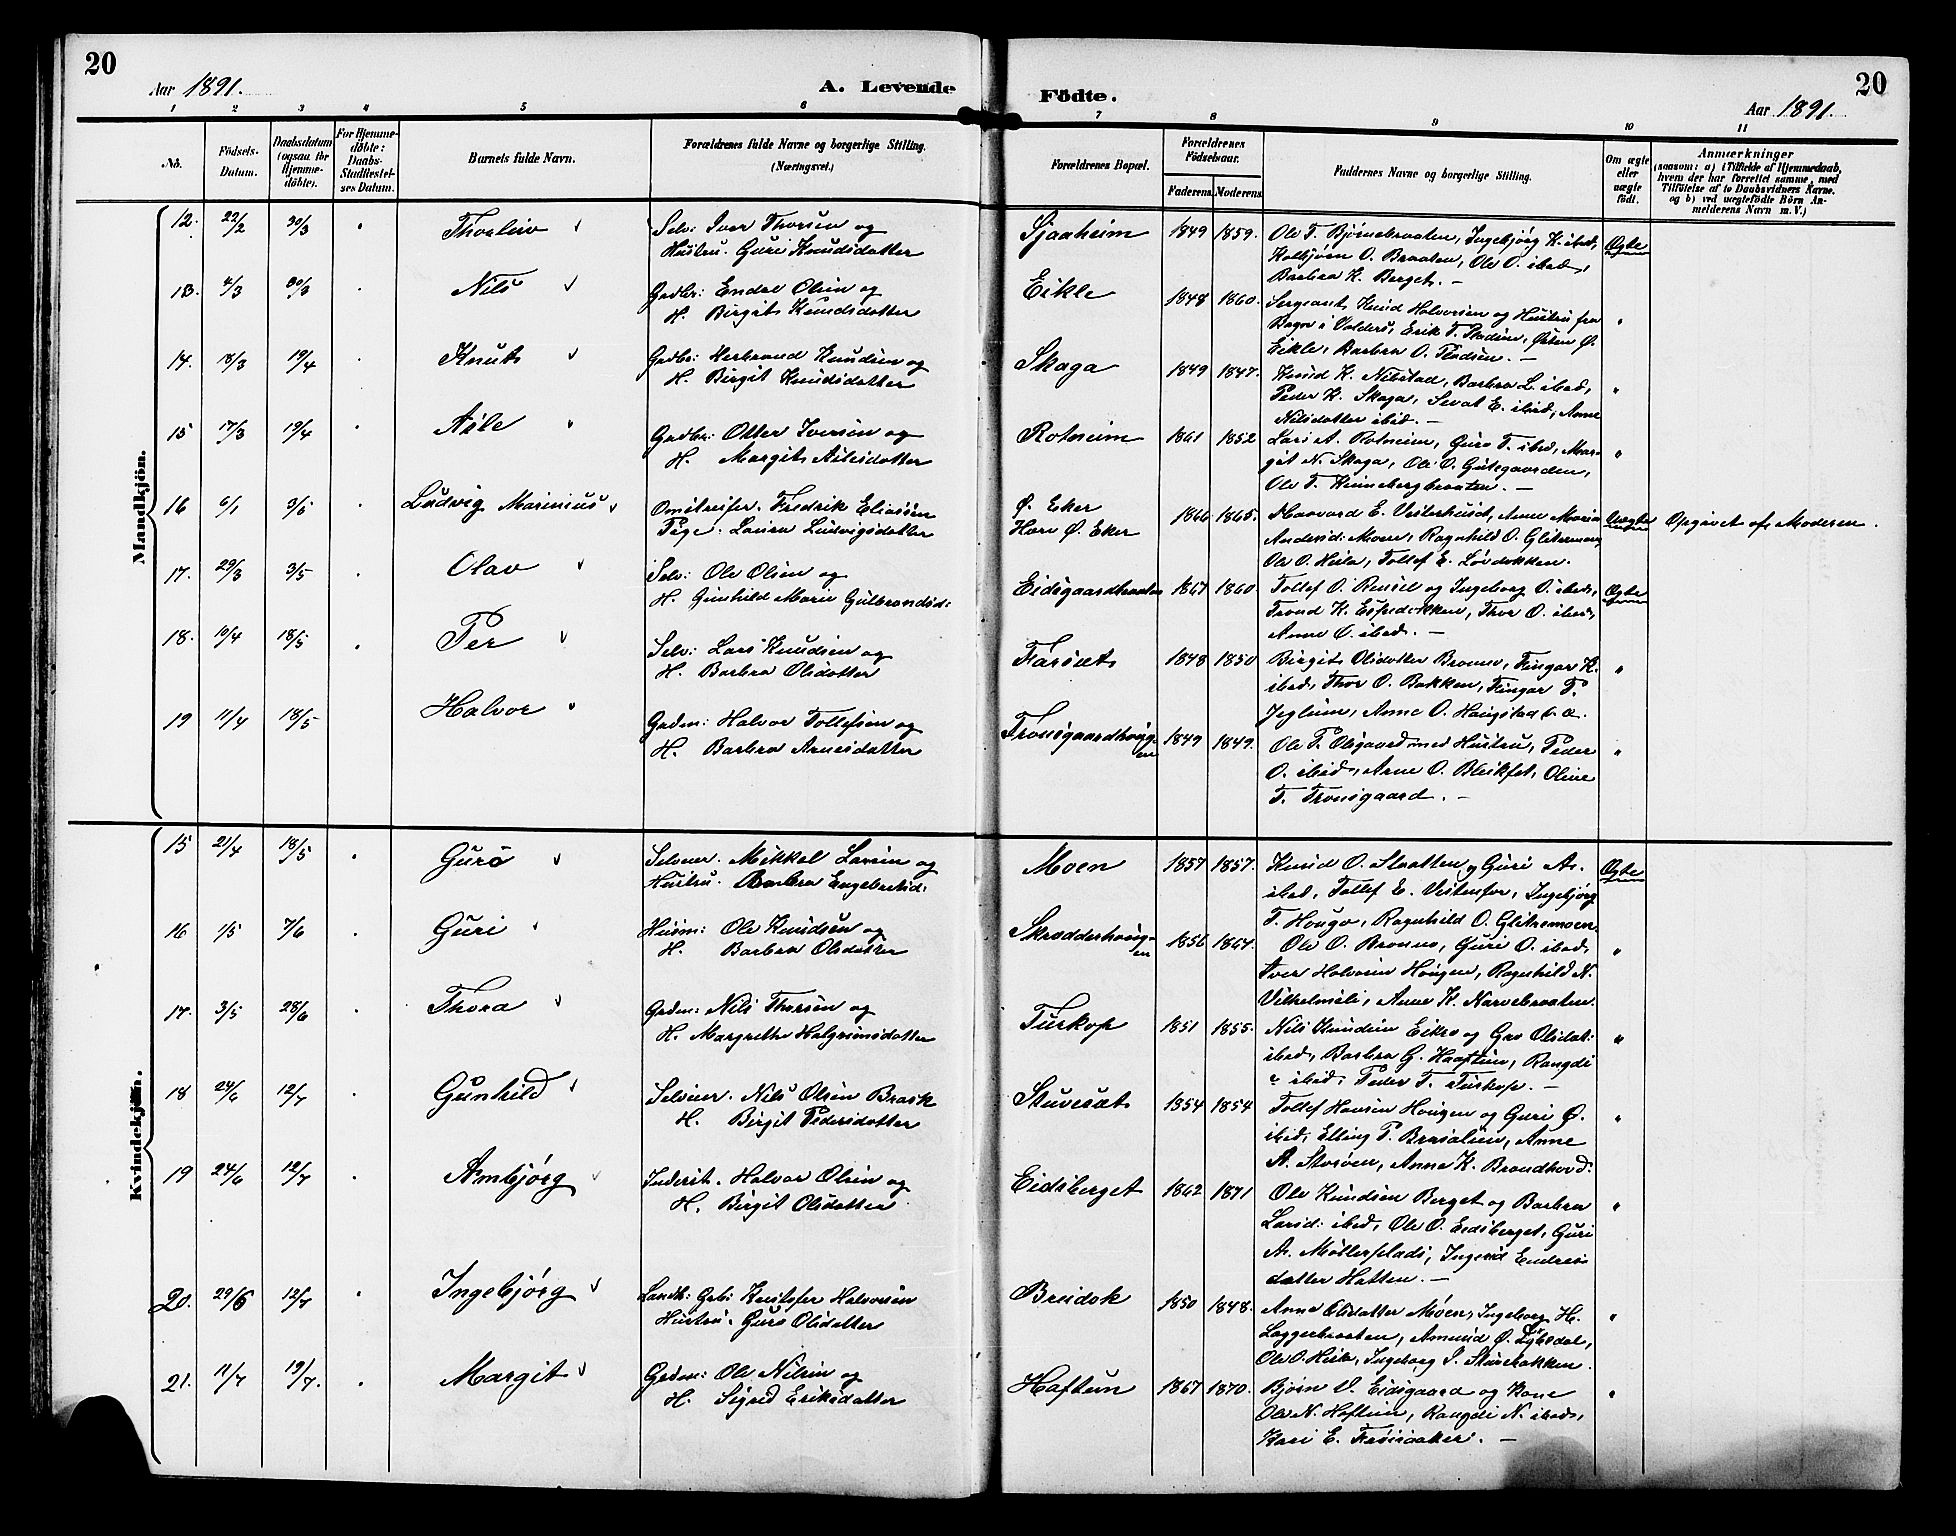 20
Aar 1891.
A. Levende
Födte.
Aar 1891.
20
1 2 3 4 5 6 7 8 9 10 11
No. Födsels-Datum. Daabsdatum (ogsaa for Hjemme-döbte). For Hjemme-döbte: Daabs-Stadfæstelses Datum. Barnets fulde Navn. Forældrenes fulde Navne og borgerlige Stilling. (Næringsvei.) Forældrenes Bopæl. Forældrenes Födselsaar. Faderens. Moderens. Faddernes Navne og borgerlige Stilling. Om ægte eller uægte födt. Anmærkninger (saasom: a) i Tilfælde af Hjemmedaab, hvem der har forrettet samme, med Tilföielse af to Daabsvidners Navne, og b) ved uægtefödte Börn Anmelderens Navn m. V.)
Mandkjön.
12. 22/2 30/3 " Thorleiv Selv: Iver Thorsen og Sjaaheim 1849 1859. Ole T. Bjørnebraaten, Ingebjørg K. ibid, Ægte
Hustru. Guri Knudsdatter Kolbjørn O. Braaten, Ole O. ibid,
Barbra K. Berget. —
13. 4/3 30/3 Nils Grdbr: Endre Olsen og Eikle 1848 1860. Sergeant Knud Halvorsen og Hustru fra "
H. Birgit Knudsdatter Bagn i Valders, Erik T. Pladsen, Østen Ø.
Eikle, Barbra O. Pladsen. —
14. 18/3 19/4 Knut Grdbr: Herbrand Knudsen og Skaga 1849 1847. Knud K. Nibstad, Barbra L. ibid, "
H. Birgit Knudsdatter Peder K. Skaga, Sevat E. ibid, Anne
Nilsdatter ibid. —
15 17/3 19/4 Asle Grdbr: Otter Iversen og Rotneim 1861 1852 Lars A. Rotneim, Guro T. ibid, Mar- "
H. Margit Aslesdatter git N. Skaga, Ole O. Gutegaarden,
Ole T. Kinnebergbraaten. —
16 6/1 3/5 Ludvig Marinius Omstreifer. Fredrik Eliassen Ø. Eker 1866 1865. Haavard E. Vesterhuset, Anne Maria Uægte Opgivet af Moderen.
Pige. Laura Ludvigsdatter Hare Ø. Eker Andersd: Moen, Ragnhild O. Glitremoen,
Ole O. Hesla, Tollef E. Lövdokken.
17. 29/3 3/5 Olav Selv: Ole Olsen og Eidsgaardbraaten 1867 1860 Tollef O. Rensel og Ingeborg O. ibid, Ægte
H. Gunhild Marie Gulbrandsd: Trond K. Espedokken, Thor O. ibid,
Anne O. ibid. —
18. 10/4 18/5 Per Selv: Lars Knudsen og Farsæt 1848 1850 Birgit Olsdatter Bromo, Fingar K. "
H. Barbra Olsdatter ibid, Thor O. Bakken, Fingar T.
Jeglum, Anne O. Haugstad b. a.
19 11/4 18/5 Halvor Grdm: Halvor Tollefsen og Tronsgaardhougen 1849 1849. Ole T. Olsgaard med Hustru, Peder "
H. Barbra Arnesdatter O. ibid, Arne O. Bleikfet, Oline
T. Tronsgaard. —
Kvindekjön.
15 21/4 18/5 Guro Selveier. Mikkel Larsen og Moen 1857 1857. Knud O. Slaatten og Guri A. Ægte
Hustru. Barbra Engebretsd: ibid, Tollef E. Vestenfor, Ingebjørg
T. Hougo, Ragnhild O. Glitremoen.
16 1/5 7/6 Guri Husm: Ole Knudsen og Skrædderhougen 1856 1864. Ole O. Bromo, Guri O. ibid, "
H. Barbra Olsdatter Iver Halvorsen Hougen, Ragnhild N.
Vilhelmsli, Anne K. Narvebraaten.
17. 3/5 28/6 Thora Grdm: Nils Thorsen og Turkop 1851 1855. Nils Knudsen Eikro og Gro Olsdat: "
H. Margrethe Halgrimsdatter ibid, Barbra G. Haftun, Rangdi
ibid, Peder T. Turkop. —
18 24/6 12/7 Gunhild Selveier. Nils Olsen Brask Stuvesæt 1854 1854 Tollef Hansen Hougen og Guri Ø. "
H. Birgit Pedersdatter ibid, Elling P. Bræsalien, Anne
A. Storøen, Anne K. Brandhovd.
19 24/6 12/7 Ambjørg Inderst. Halvor Olsen og Eidsberget 1862 1871 Ole Knudsen Berget og Barbra "
H. Birgit Olsdatter Larsd: ibid, Ole O. Eidsberget, Guri
A. Møllerplads, Ingerid Endres
datter Hatten. —
20. 29/6 12/7 Ingebjørg Landh: Grb: Kristofer Halvorsen Breidok 1850 1848. Anne Olsdatter Moen, Ingeborg H. "
Hustru. Guro Olsdatter Laggerbraaten, Amund Ø. Lyksdal,
Ole O. Hesla, Ingeborg S. Sturebakken.
21. 11/7 19/7. Margit Grdm: Ole Nilsen og Haftun 1867 1870. Bjørn O. Eidsgaard og Kone "
H. Sigrid Eriksdatter Ole N. Haftun, Rangdi N. ibid,
Kari E. Frøisaaker. —